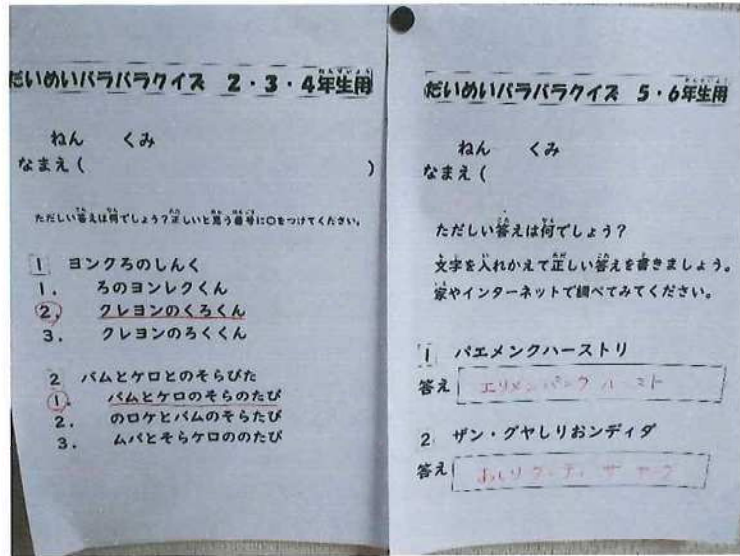 だいめいバラバラクイズ 2・3・4年生用
ねんせいよう
ねん くみ
なまえ( )
ただしい答えは何でしょう?正しいと思う番号に○をつけてください。
1 ヨンクろのしんく
1. ろのヨンレクくん
2. クレヨンのくろくん
3. クレヨンのろくくん
2 バムとケロとのそらびた
1. バムとケロのそらのたび
2. のロケとバムのそらたび
3. ムバとそらケロののたび
だいめいバラバラクイズ 5・6年生用
ねんせいよう
ねん くみ
なまえ(
ただしい答えは何でしょう?
文字を入れかえて正しい答えを書きましょう。
家やインターネットで調べてみてください。
1 パエメンクハーストリ
答え
2 ザン・グヤしりおンディダ
答え おしりダンディ ザ ヤング